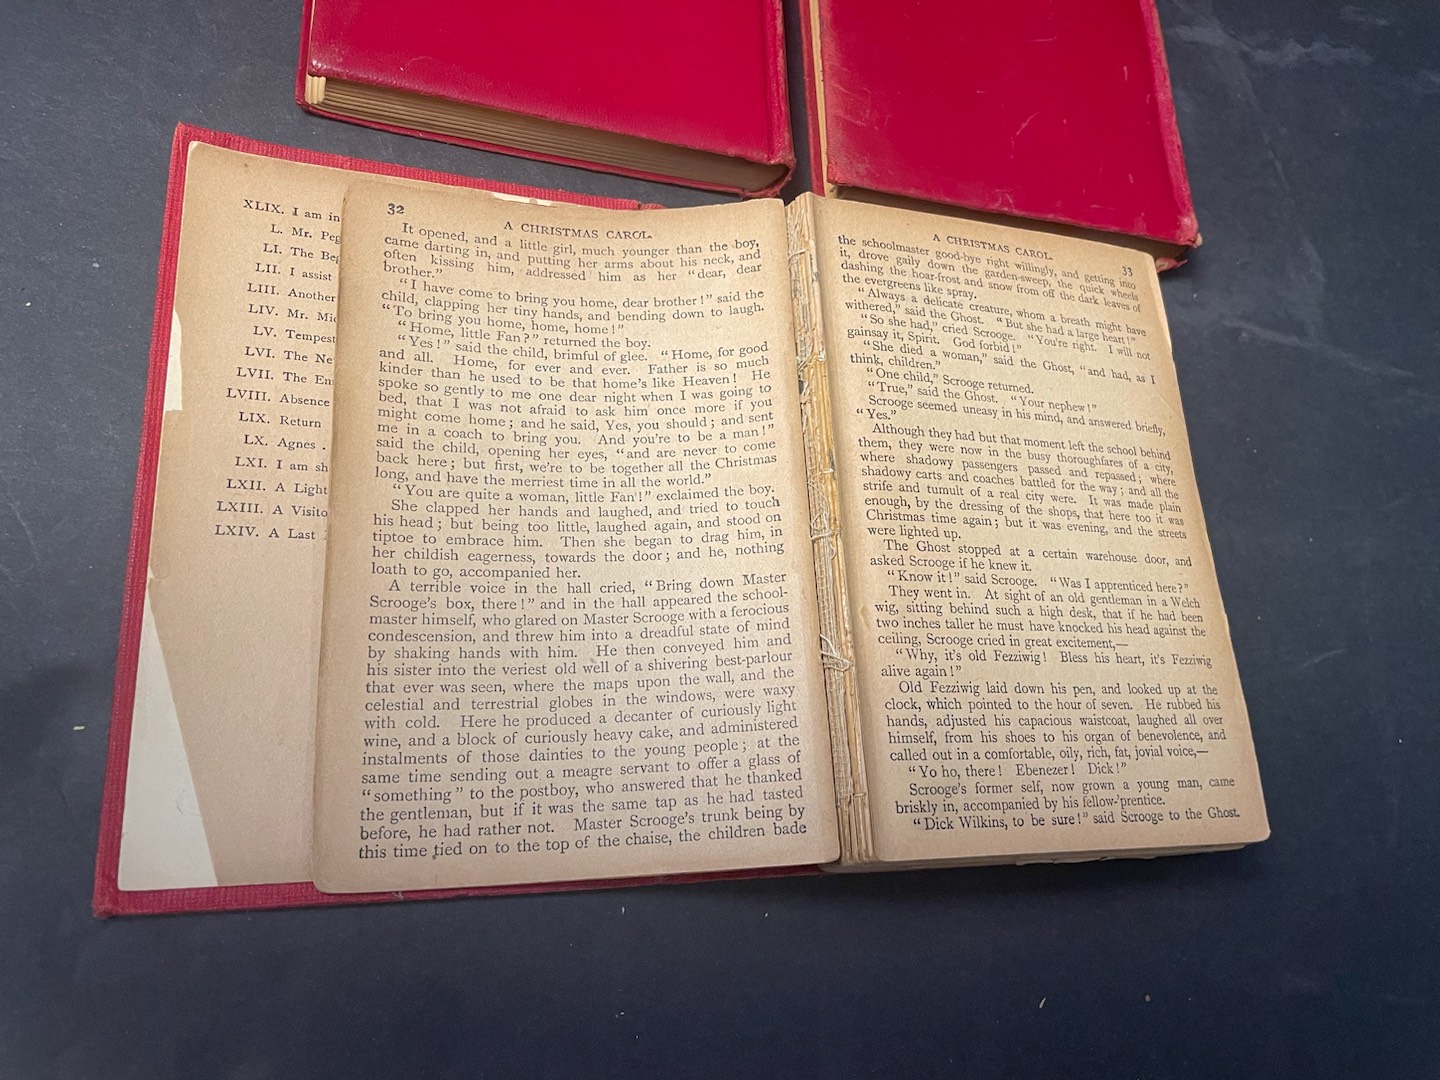 XLIX. I am in
L. Mr. Peg
LI. The Beg
LII. I assist
LIII. Another
LIV. Mr. Mic
LV. Tempest
LVI. The Ne
LVII. The En
LVIII. Absence
LIX. Return
LX. Agnes .
LXI. I am sh
LXII. A Light
LXIII. A Visito
LXIV. A Last
32
A CHRISTMAS CAROL.
It opened, and a little girl, much younger than the boy,
came darting in, and putting her arms about his neck, and
often kissing him, addressed him as her “dear, dear
brother.”
“I have come to bring you home, dear brother!” said the
child, clapping her tiny hands, and bending down to laugh.
“To bring you home, home, home!”
“Home, little Fan?” returned the boy.
“Yes!” said the child, brimful of glee. “Home, for good
and all. Home, for ever and ever. Father is so much
kinder than he used to be that home’s like Heaven! He
spoke so gently to me one dear night when I was going to
bed, that I was not afraid to ask him once more if you
might come home; and he said, Yes, you should; and sent
me in a coach to bring you. And you’re to be a man!”
said the child, opening her eyes, “and are never to come
back here; but first, we’re to be together all the Christmas
long, and have the merriest time in all the world.”
“You are quite a woman, little Fan!” exclaimed the boy.
She clapped her hands and laughed, and tried to touch
his head; but being too little, laughed again, and stood on
tiptoe to embrace him. Then she began to drag him, in
her childish eagerness, towards the door; and he, nothing
loath to go, accompanied her.
A terrible voice in the hall cried, “Bring down Master
Scrooge’s box, there!” and in the hall appeared the school-
master himself, who glared on Master Scrooge with a ferocious
condescension, and threw him into a dreadful state of mind
by shaking hands with him. He then conveyed him and
his sister into the veriest old well of a shivering best-parlour
that ever was seen, where the maps upon the wall, and the
celestial and terrestrial globes in the windows, were waxy
with cold. Here he produced a decanter of curiously light
wine, and a block of curiously heavy cake, and administered
instalments of those dainties to the young people; at the
same time sending out a meagre servant to offer a glass of
“something” to the postboy, who answered that he thanked
the gentleman, but if it was the same tap as he had tasted
before, he had rather not. Master Scrooge’s trunk being by
this time tied on to the top of the chaise, the children bade
A CHRISTMAS CAROL.
33
the schoolmaster good-bye right willingly, and getting into
it, drove gaily down the garden-sweep, the quick wheels
dashing the hoar-frost and snow from off the dark leaves of
the evergreens like spray.
“Always a delicate creature, whom a breath might have
withered,” said the Ghost. “But she had a large heart!”
“So she had,” cried Scrooge. “You’re right. I will not
gainsay it, Spirit. God forbid!”
“She died a woman,” said the Ghost, “and had, as I
think, children.”
“One child,” Scrooge returned.
“True,” said the Ghost. “Your nephew!”
Scrooge seemed uneasy in his mind, and answered briefly,
“Yes.”
Although they had but that moment left the school behind
them, they were now in the busy thoroughfares of a city,
where shadowy passengers passed and repassed; where
shadowy carts and coaches battled for the way; and all the
strife and tumult of a real city were. It was made plain
enough, by the dressing of the shops, that here too it was
Christmas time again; but it was evening, and the streets
were lighted up.
The Ghost stopped at a certain warehouse door, and
asked Scrooge if he knew it.
“Know it!” said Scrooge. “Was I apprenticed here?”
They went in. At sight of an old gentleman in a Welch
wig, sitting behind such a high desk, that if he had been
two inches taller he must have knocked his head against the
ceiling, Scrooge cried in great excitement,—
“Why, it’s old Fezziwig! Bless his heart, it’s Fezziwig
alive again!”
Old Fezziwig laid down his pen, and looked up at the
clock, which pointed to the hour of seven. He rubbed his
hands, adjusted his capacious waistcoat, laughed all over
himself, from his shoes to his organ of benevolence, and
called out in a comfortable, oily, rich, fat, jovial voice,—
“Yo ho, there! Ebenezer! Dick!”
Scrooge’s former self, now grown a young man, came
briskly in, accompanied by his fellow-’prentice.
“Dick Wilkins, to be sure!” said Scrooge to the Ghost.